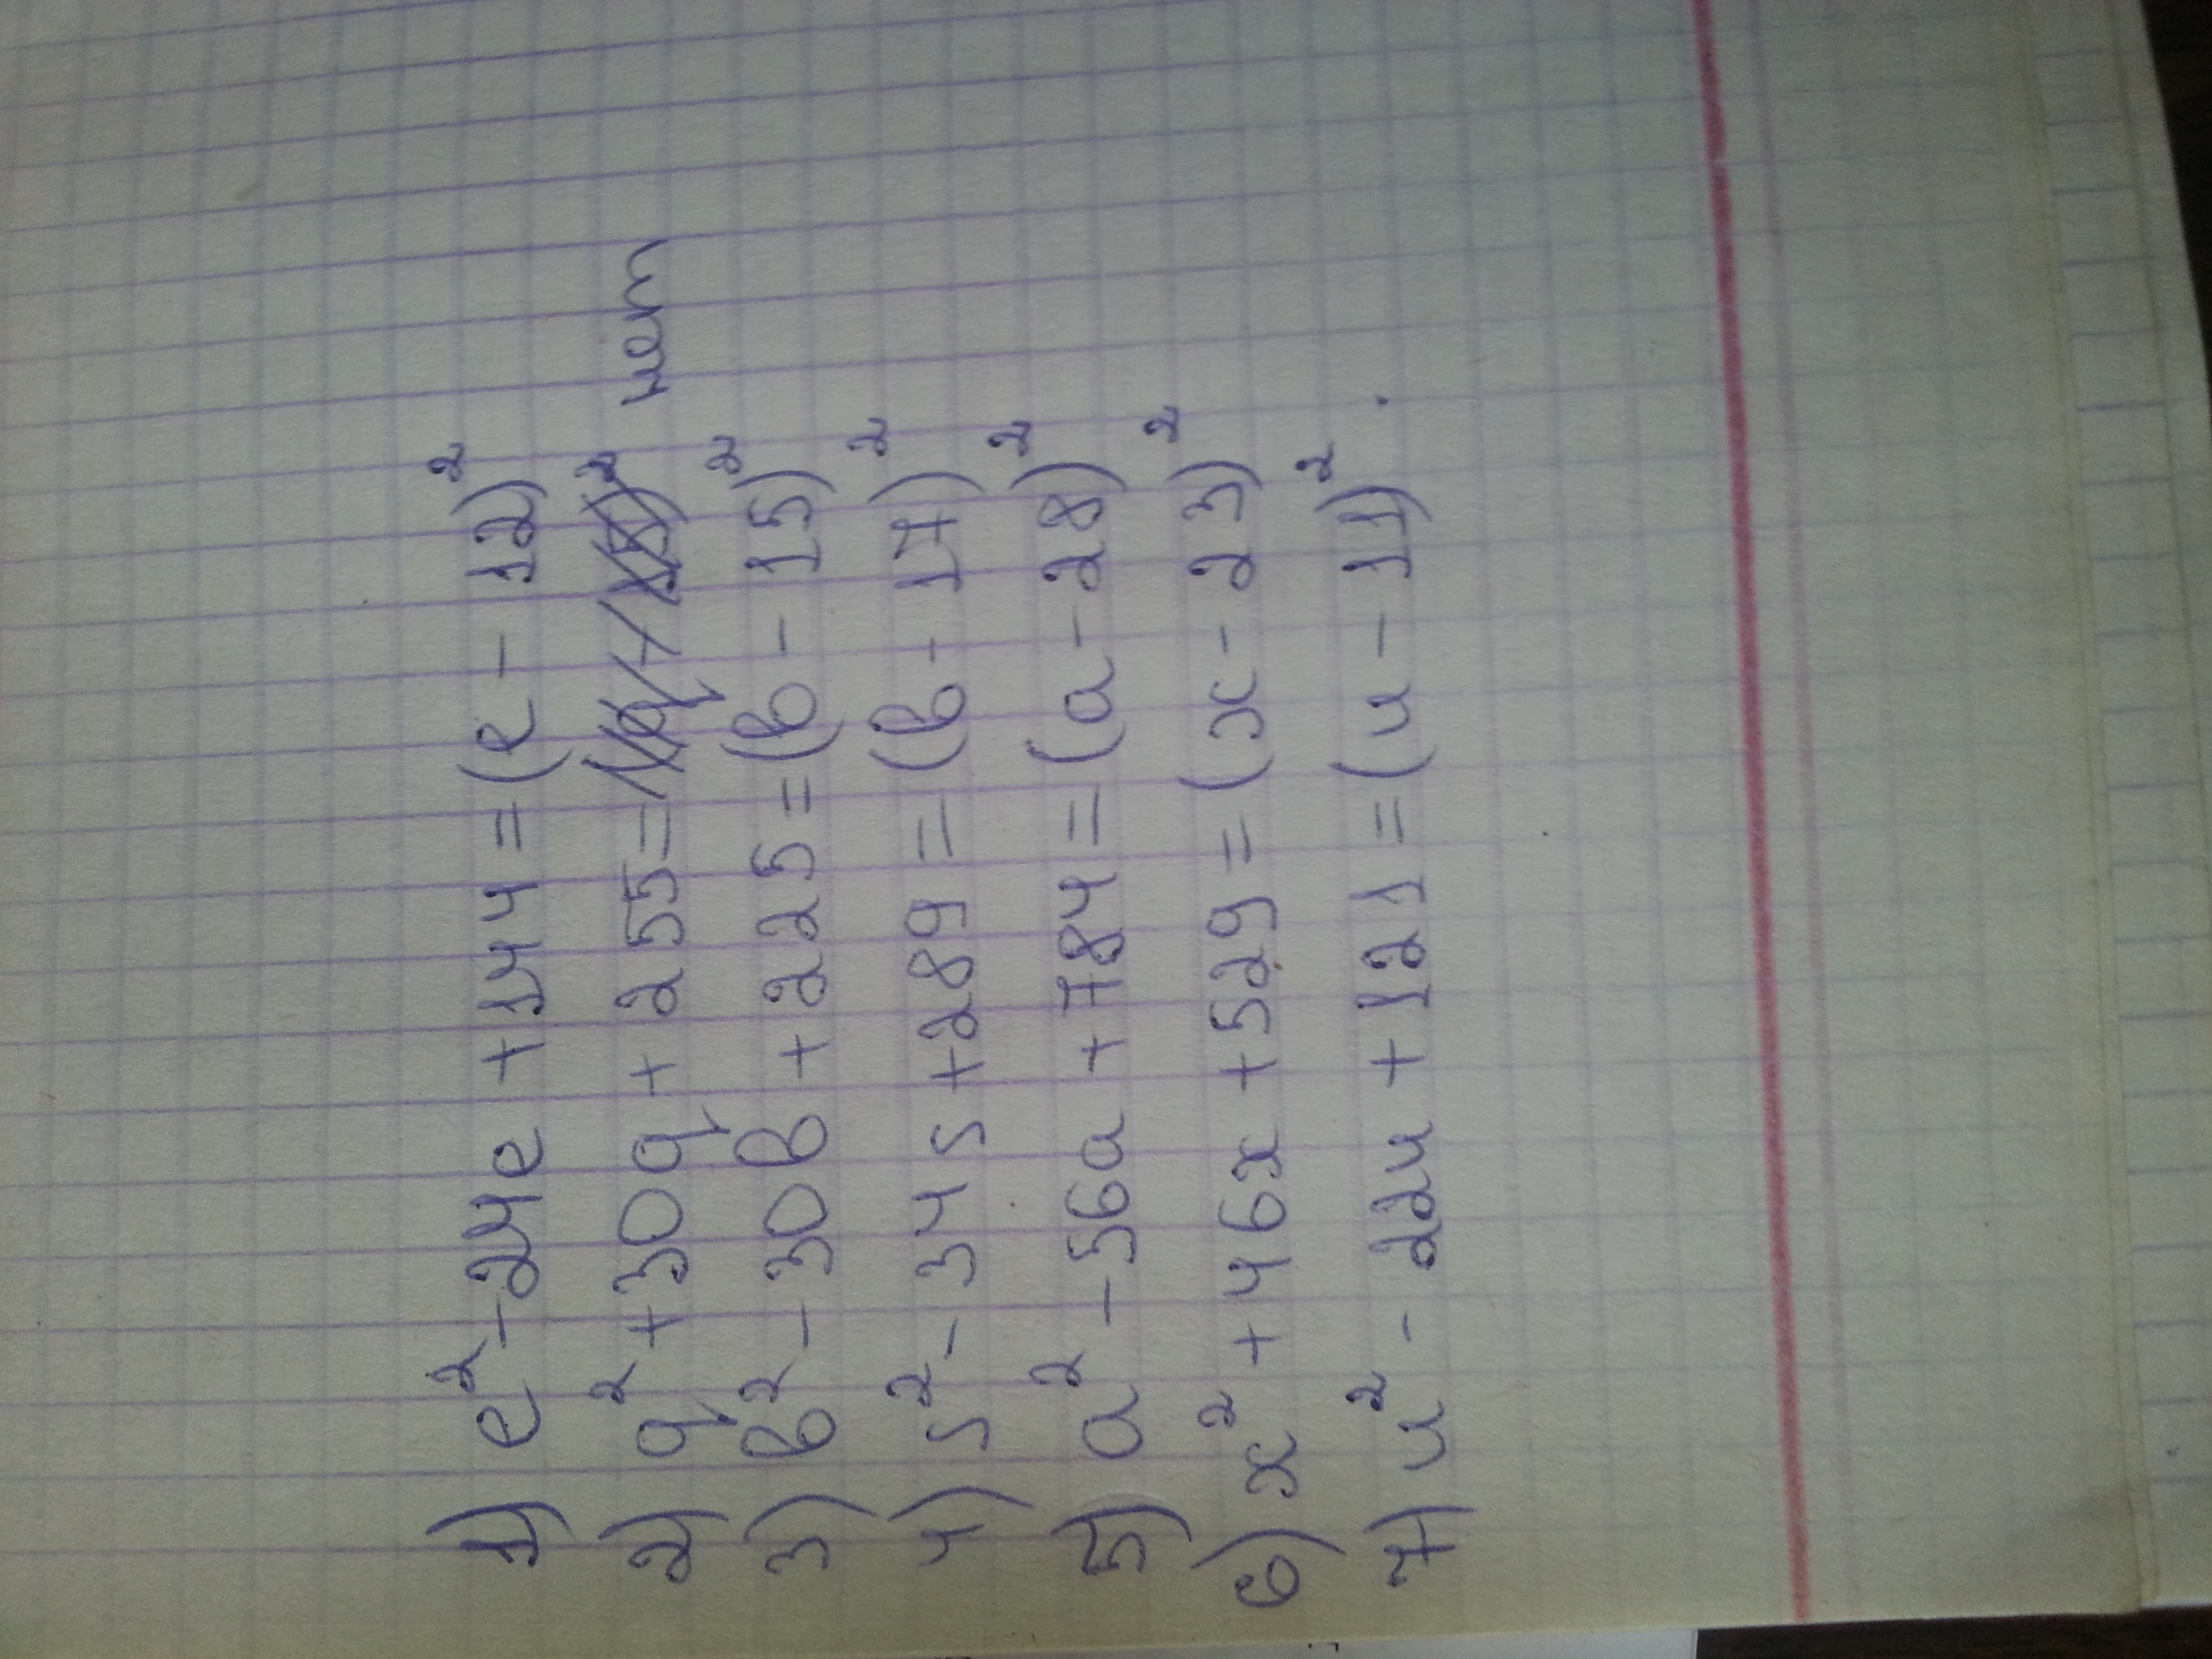 1) e²-24e+144=(e-12)²
2) q²+30q+255= нет
3) в²-30в+225=(в-15)²
4) s²-34s+289=(в-17)²
5) a²-56a+784=(a-28)²
6) x²+46x+529=(x-23)²
7) u²-22u+121=(u-11)².